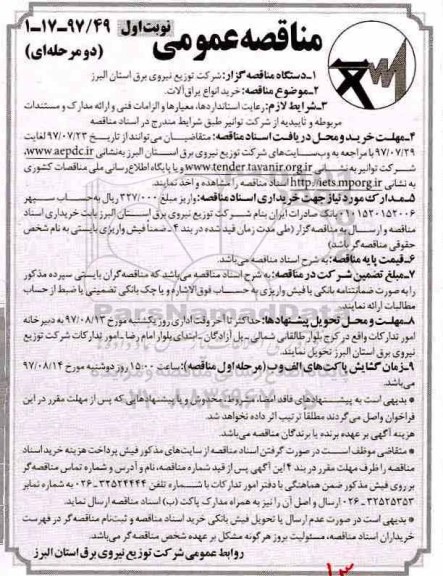 نوبت اول
مناقصه عمومی
۱-۱۷-۹۷/۴۹
(دو مرحله‌ای)
۱-دستگاه مناقصه گزار: شرکت توزیع نیروی برق استان البرز
۲-موضوع مناقصه: خرید انواع یراق‌آلات.
۳-شرایط لازم: رعایت استانداردها، معیارها و الزامات فنی و ارائه مدارک و مستندات
مربوطه و تاییدیه از شرکت توانیر طبق شرایط مندرج در اسناد مناقصه
۴-مهلت خرید و محل دریافت اسناد مناقصه: متقاضیان می‌توانند از تاریخ ۹۷/۰۷/۲۳ لغایت
۹۷/۰۷/۲۹ با مراجعه به وب‌سایت‌های شرکت توزیع نیروی برق استان البرز به‌نشانی www.aepdc.ir،
شرکت توانیر به نشانی www.tender.tavanir.org.ir و یا پایگاه اطلاع‌رسانی ملی مناقصات کشوری
به نشانی http://iets.mporg.ir اسناد مناقصه را مشاهده و اخذ نمایند.
۵-مدارک مورد نیاز جهت خریداری اسناد مناقصه: واریز مبلغ ۳۲۷/۰۰۰ ریال به‌حساب سپهر
۰۱۰۱۵۲۰۱۵۲۰۰۶ بانک صادرات ایران بنام شرکت توزیع نیروی برق استان البرز بابت خریداری اسناد
مناقصه و ارسال به مناقصه گزار (طی مدت زمان قید شده در بند ۴-ضمنا فیش واریزی بایستی به نام شخص
حقوقی مناقصه گر باشد)
۶-قیمت پایه مناقصه: به شرح اسناد مناقصه می‌باشد.
۷-مبلغ تضمین شرکت در مناقصه: به شرح اسناد مناقصه می‌باشد که مناقصه‌گران بایستی سپرده مذکور
را به صورت ضمانتنامه بانکی یا فیش واریزی به حساب فوق‌الاشاره و یا چک بانکی تضمینی یا ضبط از حساب
مطالبات ارائه نمایند.
۸-مهلت و محل تحویل پیشنهادها: حداکثر تا آخر وقت اداری روز یکشنبه مورخ ۹۷/۰۸/۱۳ به دبیرخانه
امور تدارکات واقع در کرج بلوار طالقانی شمالی-پل آزادگان-ابتدای بلوار امام رضا-امور تدارکات شرکت توزیع
نیروی برق استان البرز تحویل نمایند.
۹-زمان گشایش پاکت‌های الف و ب (مرحله اول مناقصه): ساعت ۱۵:۰۰ روز دوشنبه مورخ ۹۷/۰۸/۱۴
می‌باشد.
* بدیهی است به پیشنهادهای فاقد امضا، مشروط، مخدوش و یا پیشنهادهایی که پس از مهلت مقرر در این
فراخوان واصل می‌گردند مطلقاً ترتیب اثر داده نخواهد شد.
هزینه آگهی بر عهده برنده یا برندگان مناقصه می‌باشد.
* متقاضی موظف است در صورت گرفتن اسناد مناقصه از سایت‌های مذکور فیش پرداخت هزینه خرید اسناد
مناقصه را ظرف مهلت مقرر در بند ۴ این آگهی پس از قید شماره مناقصه، نام و آدرس و شماره تماس مناقصه‌گر
بر روی فیش مذکور ضمن هماهنگی با دفتر امور تدارکات با شماره تلفن ۳۲۵۲۴۴۴۴-۰۲۶ به شماره نمابر
۳۲۵۲۵۳۵۳-۰۲۶ ارسال و اصل آن را نیز به همراه مدارک پاکت (ب) اسناد مناقصه ارسال نماید.
* بدیهی است در صورت عدم ارسال یا تحویل فیش بانکی خرید اسناد مناقصه و ثبت‌نام مناقصه‌گر در فهرست
خریداران اسناد مناقصه، مسئولیت بروز هرگونه مشکل بر عهده شخص مناقصه گر می‌باشد.
روابط عمومی شرکت توزیع نیروی برق استان البرز
ParsNamadData